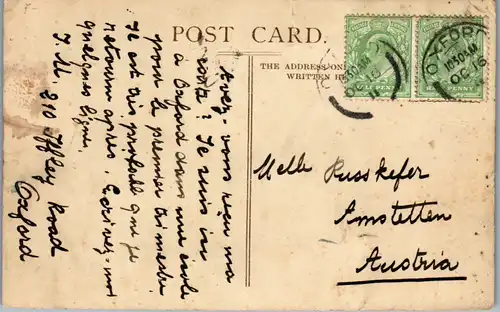 POST CARD.
THE ADDRESS ON
WRITTEN HE
Avez-vous reçu ma
carte? Je suis ici
à Oxford dans une école
pour le premier trimestre
Il est très probable que je
retourne après. Ecrivez-moi
quelques lignes.
310 Iffley Road
Oxford
Melle Russkefer
Amstetten
Austria
OXFORD
10.30AM
OC 16
HALFPENNY
HALFPENNY